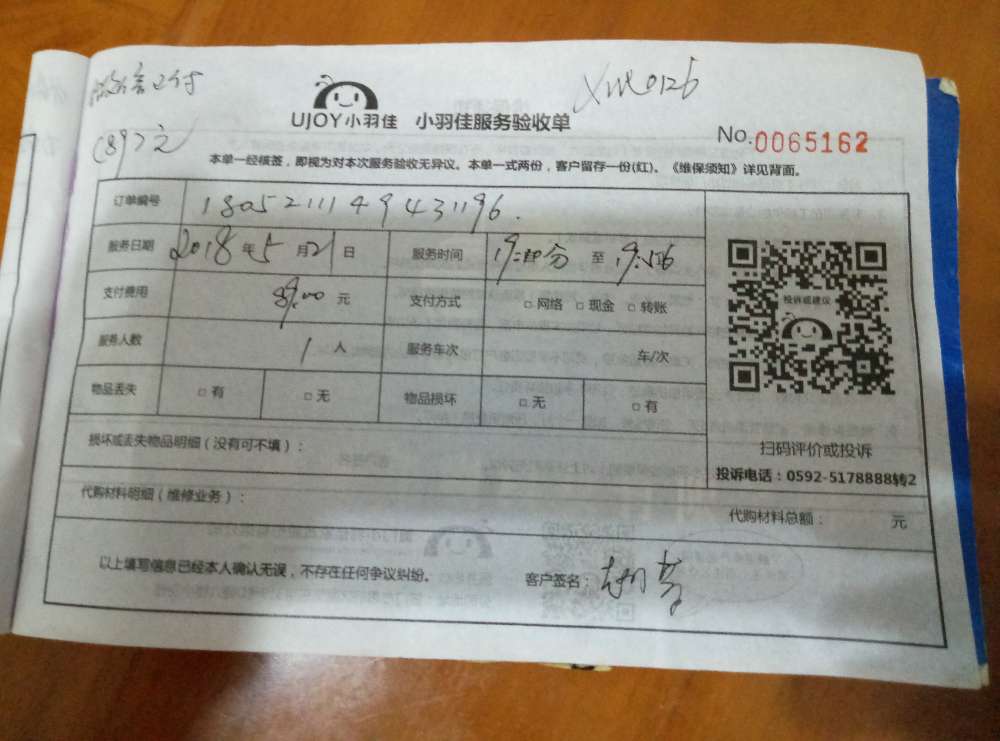 微信支付
XM0126
(89)元
UJOY小羽佳 小羽佳服务验收单
No.0065162
本单一经核签，即视为对本次服务验收无异议。本单一式两份，客户留存一份(红)。《维保须知》详见背面。
订单编号 1805211149431196.
服务日期 2018年5月21日 服务时间 19:00分 至 19:56
支付费用 89.00 元 支付方式 □网络 □现金 □转账
服务人数 1人 服务车次 车/次
物品丢失 □有 □无 物品损坏 □无 □有
投诉或建议
扫码评价或投诉
投诉电话：0592-5178888转2
损坏或丢失物品明细（没有可不填）：
代购材料明细（维修业务）：
代购材料总额： 元
以上填写信息已经本人确认无误，不存在任何争议纠纷。 客户签名：